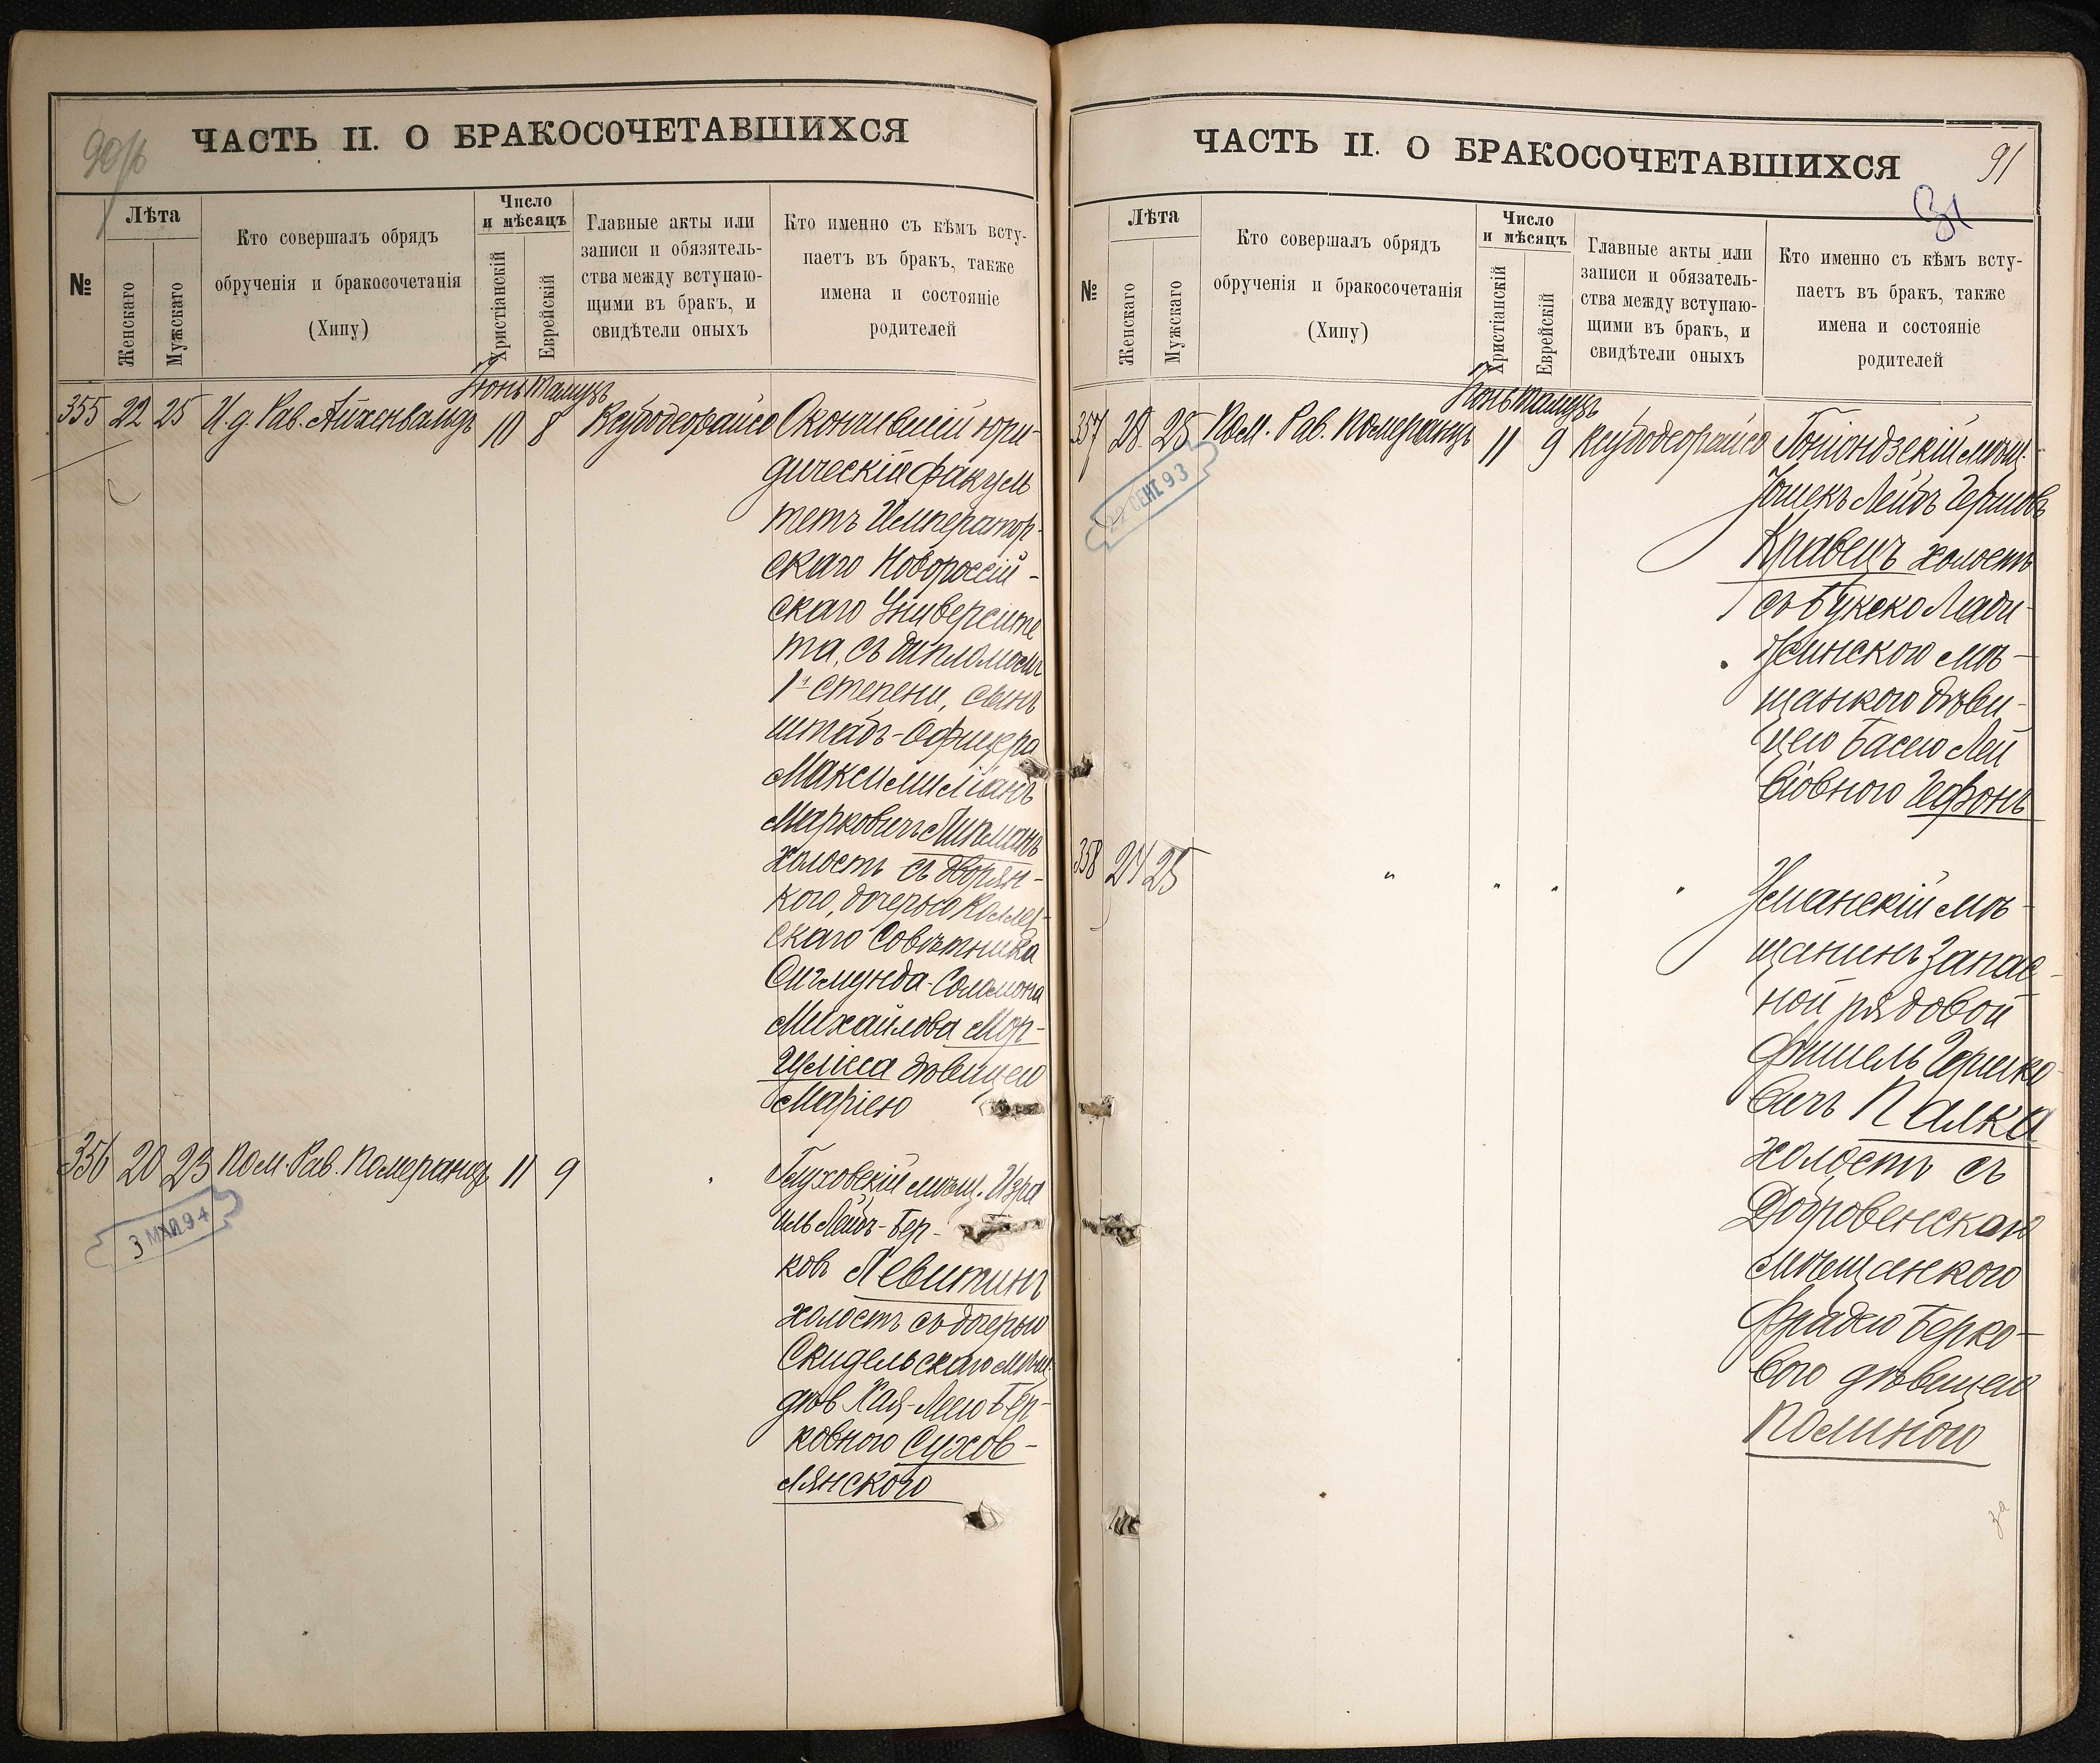 90об
ЧАСТЬ II. О БРАКОСОЧЕТАВШИХСЯ
№
Лѣта
Женскаго
Мужскаго
Кто совершалъ обрядъ
обрученія и бракосочетанія
(Хипу)
Число
и мѣсяцъ
Христіанскій
Еврейскій
Главные акты или
записи и обязятель-
ства между вступаю-
щими въ бракъ, и
свидѣтели оныхъ
Кто именно съ кѣмъ всту-
паетъ въ бракъ, также
имена и состояніе
родителей
Іюнь Тамузъ
355 22 25 И.д. Рав. Айхенвальдъ 10 8 Ксубодеорайсо Окончившій юри-
дическій факуль
тетъ Император-
скаго Новороссій-
скаго Университе
та, съ дипломомъ
1й степени, сынъ
штабъ-Офицера
Максимиліанъ
Марковичъ Липманъ
холостъ съ дворян-
кою, дочерью Коллеж-
скаго Совѣтника
Сигмунда-Соломона
Михайлова Мор-
гулиса дѣвицею
Маріею
356 20 23 Пом. Рав. Померанцъ 11 9 Глуховскій мѣщ. Изра
иль Лейбъ-Бер-
ковъ Левитинъ
холостъ съ дочерью
Скидельскаго мѣщ.
дѣв Хая-Леею Бер-
ковною Сухов-
лянскою
3 МАЙ 94
ЧАСТЬ II. О БРАКОСОЧЕТАВШИХСЯ
91
31
№
Лѣта
Женскаго
Мужскаго
Кто совершалъ обрядъ
обрученія и бракосочетанія
(Хипу)
Число
и мѣсяцъ
Христіанскій
Еврейскій
Главные акты или
записи и обязатель-
ства между вступаю-
щими въ бракъ, и
свидѣтели оныхъ
Кто именно съ кѣмъ всту-
паетъ въ бракъ, также
имена и состояніе
родителей
Іюнь Тамузъ
357 28 25 Пом. Рав. Померанцъ 11 9 Ксубодеорайсо Гоніондзскій мѣщ.
Іошекъ Лейбъ Гершовъ
Кравецъ холостъ
съ Лади-
жинскою мѣ-
щанкою дѣви-
цею Басею Лей
бовною Гефонъ
22 СЕНТ 93
358 24 25 " " " " Уманскій мѣ-
щанинъ Запас-
ной рядовой
Фишель Гершко-
вичъ Палка
холостъ съ
Добровенскою
мѣщанкою
Фрадею Берко-
вою дѣвицею
Полиною
за